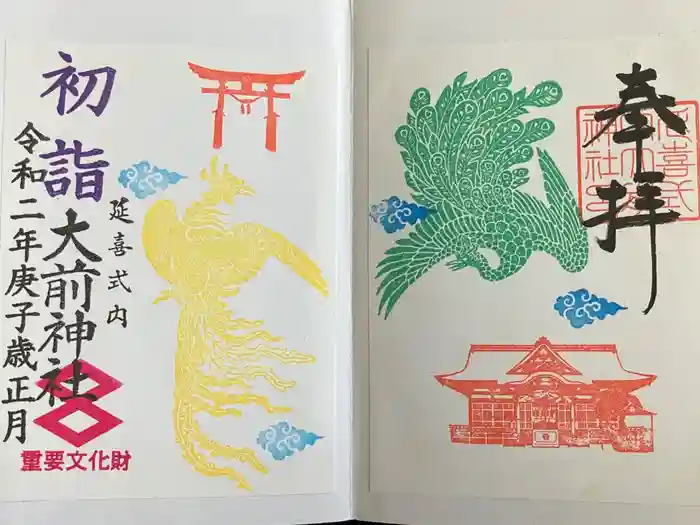 奉拝
延喜式
内大前
神社
延喜式内
初詣
大前神社
令和二年庚子歳正月
重要文化財